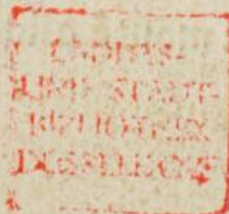 LANDES-
STADT-
BIBLIOTHEK
DÜSSELDORF